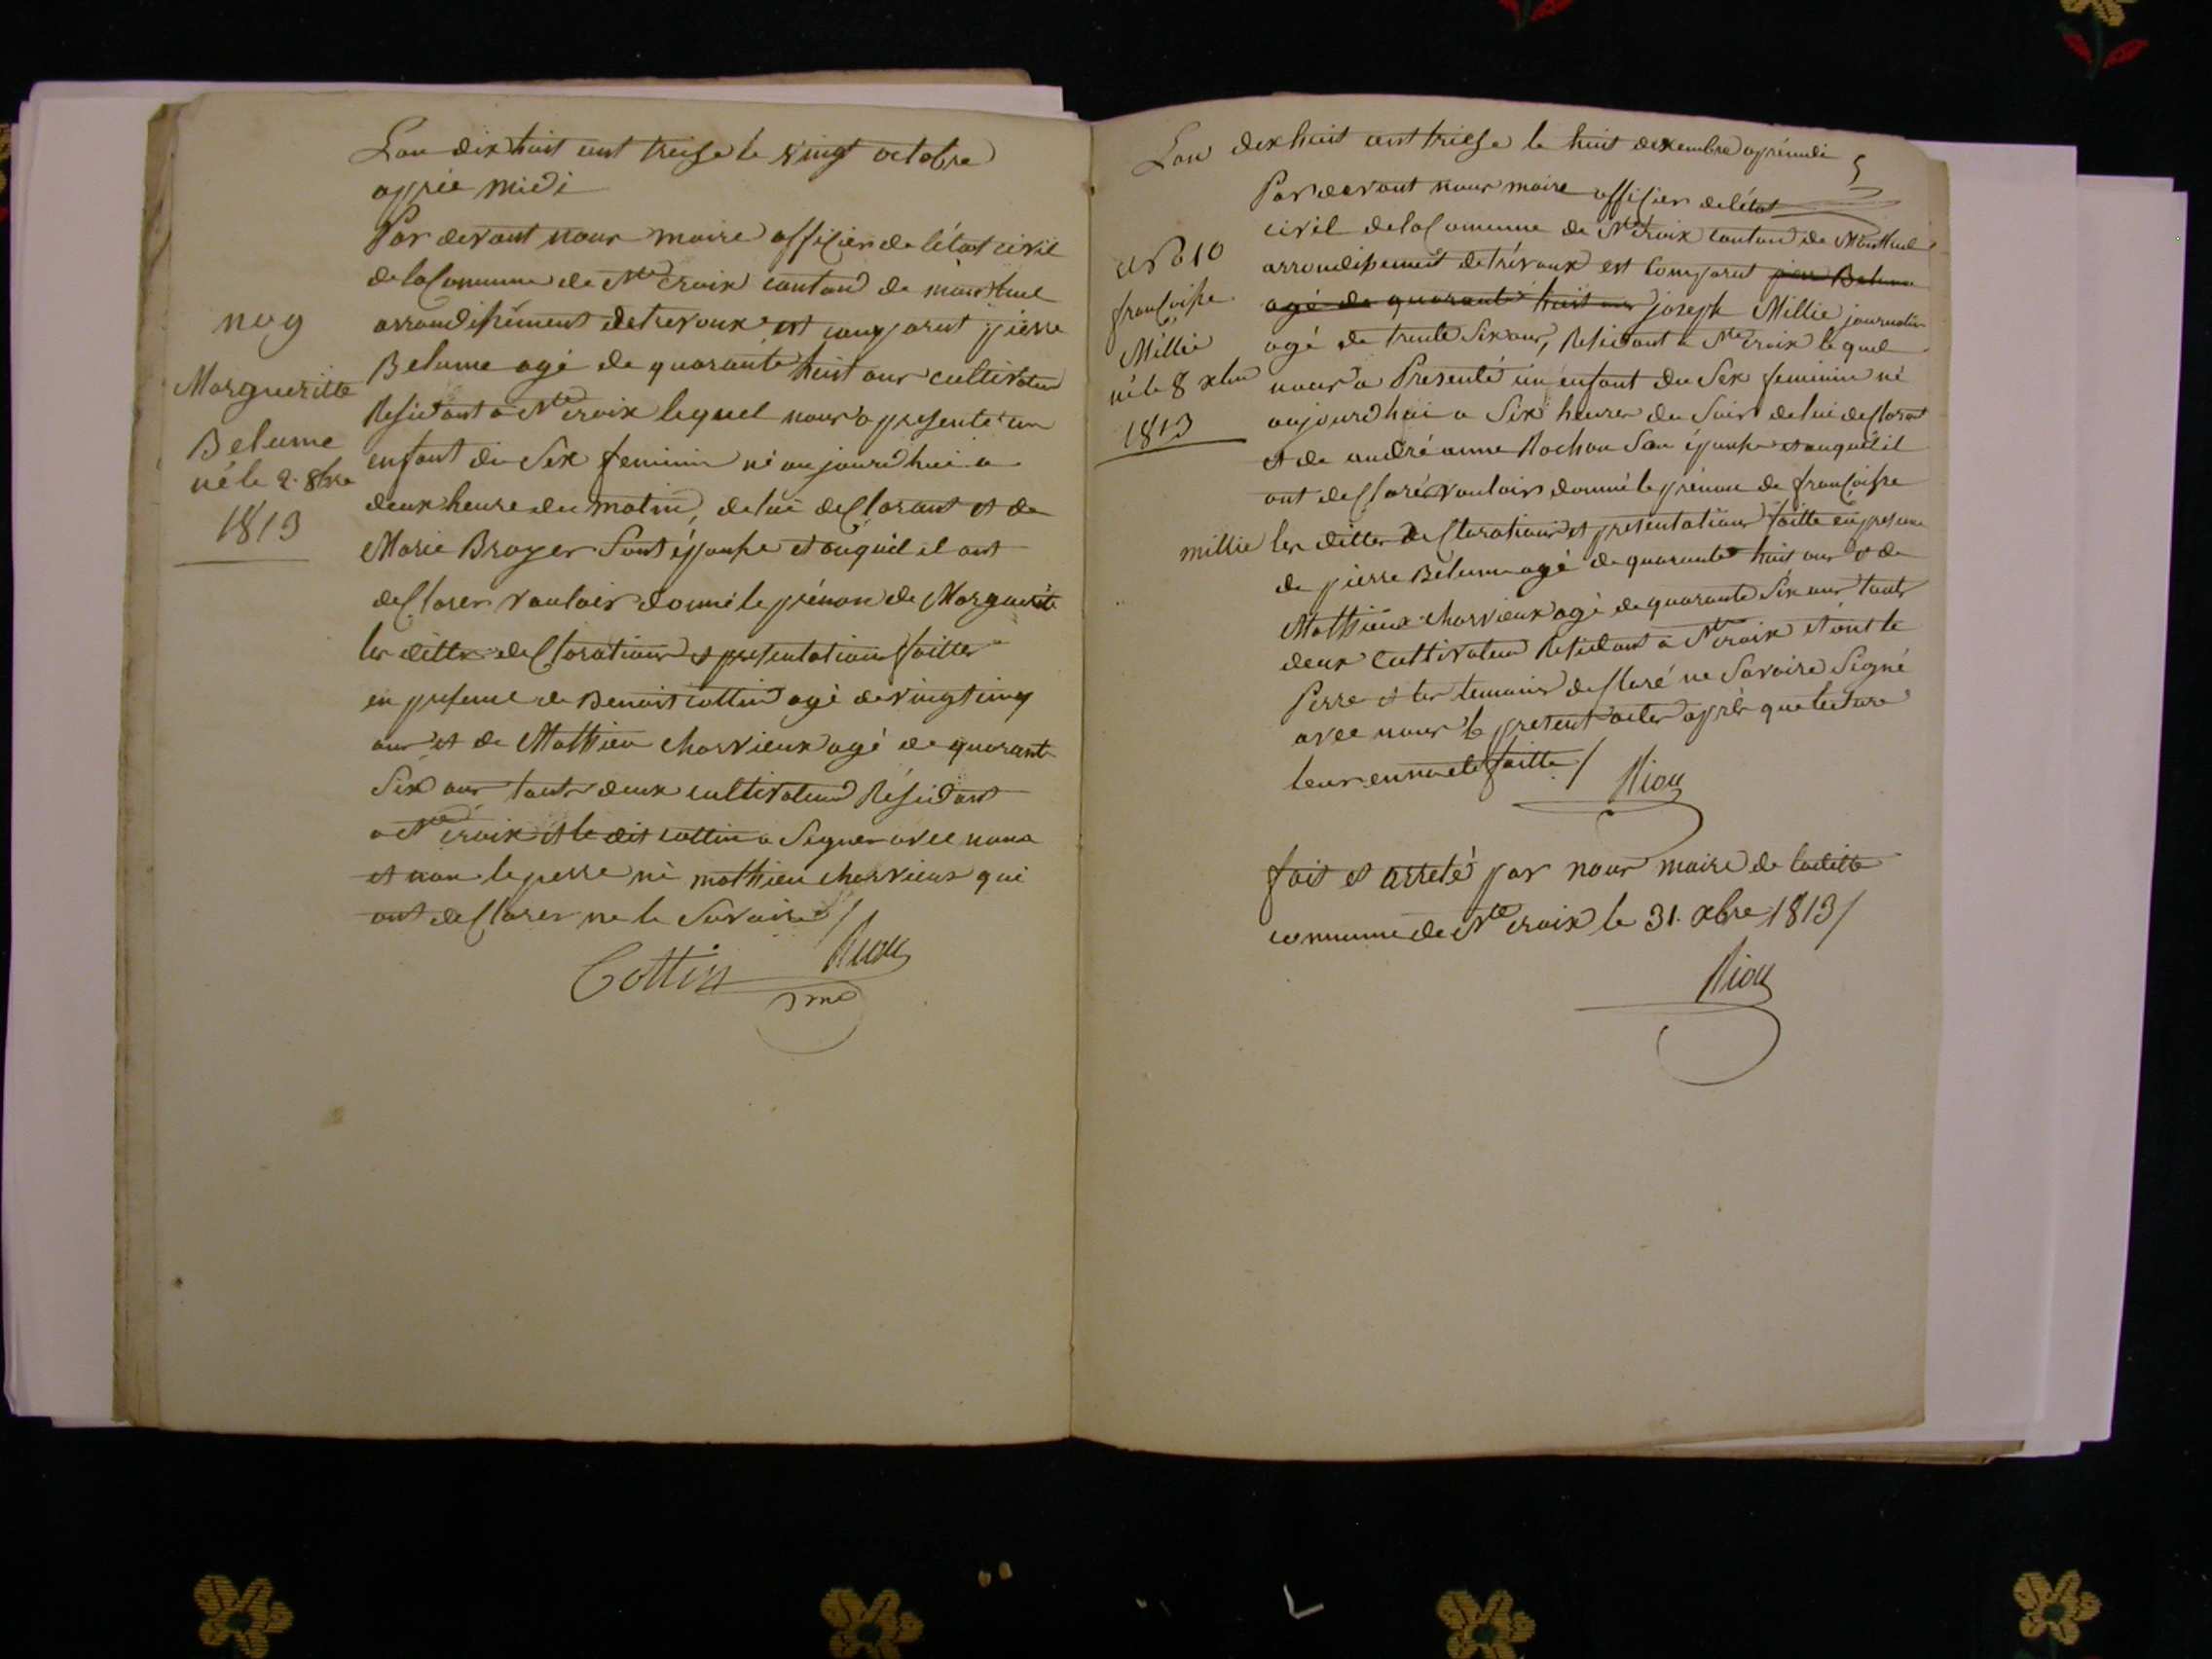 Lan dix huit cent treise le vingt octobre
apprès midi
Par devant nous maire officier de létat civil
de la Commune de Ste Croix canton de montluel
arrondissement de trevoux est comparut pierre
Belume agé de quarante huit ans cultivateur
Residant a Ste croix lequel nous a presenté un
enfant du Sex feminin né aujourdhui a
deux heure du matin, de lui desClarant et de
Marie Broyer Sont épouse et auquel il ont
desClarer vouloir donné le prénom de Marguerite
les dittes desClarations et presentations faittes
en presence de Benoit cottin agé de vingt cinq
ans et de Mathieu Charvieux agé de quarante
Six ans touts deux cultivateurs Résidant
a Ste croix et le dit cottin a Signer avec nous
et non le perre ni mathieu charvieux qui
ont desClarer ne le Savoire /
Cottin Riou
no 9
Margueritte
Belume
né le 2. 8bre
1813
5
Lan dix huit cent triesse le huit dexembre aprémidi
Par devant nous maire officier de létat
civil de la Commune de Ste croix canton de Montluel
arrondissement de trévoux est Comparut pierre Belume
agé de quarante huit ans joseph Millié journalier
agé de trente Six ans, Residant a Ste croix lequel
nous a Presenté un enfant du Sex feminin né
aujourdhui a Six heures du Soir de lui desClarant
et de andré anne Rochon San épouse et auquel il
ont desClaré vouloir donné le prénom de francoisse
millie les dittes desClarations et presentations faitte en presence
de pierre Belume agé de quarante huit ans et de
Mathieux Charvieux agé de quarante Six ans touts
deux Cultivateur Residant a Ste croix et ont le
Perre et les temoins desClaré ne Savoire Signé
avec nous le present actes après que lecture
leur en na eté faitte / Riou
No 10
francoisse
Millié
né le 8 xbre
1813
fait et arreté par nous maire de laditte
commune de Ste croix le 31. xbre 1813 /
Riou